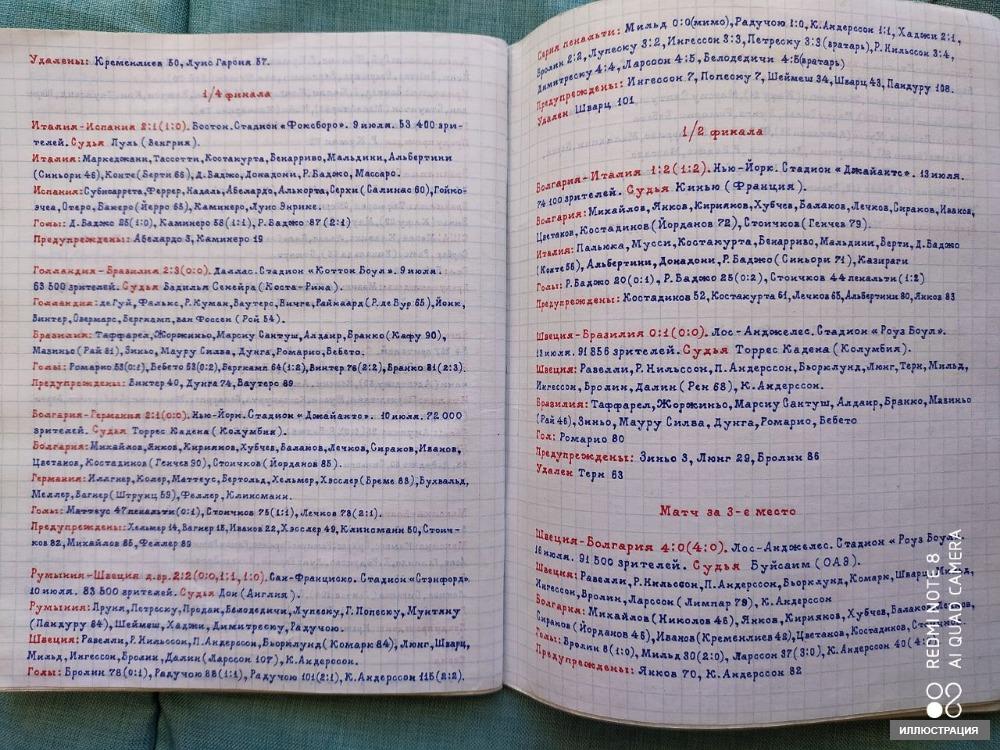 Удалены: Кременлиев 50, Луис Гарсия 57.
1/4 финала
Италия-Испания 2:1(1:0). Бостон. Стадион «Фоксборо». 9 июля. 53 400 зри-
телей. Судья Пуль (Венгрия).
Италия: Маркеджани, Тассотти, Костакурта, Бенарриво, Мальдини, Альбертини
(Синьори 46), Конте (Берти 66), Д. Баджо, Донадони, Р. Баджо, Массаро.
Испания: Субисаррета, Феррер, Надаль, Абелардо, Алькорта, Серхи (Салинас 60), Гойко-
эчеа, Отеро, Бакеро (Йерро 65), Каминеро, Луис Энрике.
Голы: Д. Баджо 25(1:0), Каминеро 58(1:1), Р. Баджо 87(2:1)
Предупреждены: Абелардо 3, Каминеро 19
Голландия-Бразилия 2:3(0:0). Даллас. Стадион «Коттон Боул». 9 июля.
63 500 зрителей. Судья Бадилья Секейра (Коста-Рика).
Голландия: де Гуй, Фалькс, Р. Куман, Ваутерс, Вичге, Райкаард (Р. де Бур 65), Йонк,
Винтер, Овермарс, Бергкамп, ван Фоссен (Рой 54).
Бразилия: Таффарел, Жоржиньо, Марсиу Сантуш, Алдаир, Бранко (Кафу 90),
Мазиньо (Раи 81), Зиньо, Мауру Силва, Дунга, Ромарио, Бебето.
Голы: Ромарио 53(0:1), Бебето 63(0:2), Бергкамп 64(1:2), Винтер 76(2:2), Бранко 81(2:3).
Предупреждены: Винтер 40, Дунга 74, Ваутерс 89
Болгария-Германия 2:1(0:0). Нью-Йорк. Стадион «Джайантс». 10 июля. 72 000
зрителей. Судья Торрес Кадена (Колумбия).
Болгария: Михайлов, Янков, Кириянов, Хубчев, Балаков, Лечков, Сираков, Иванов,
Цветанов, Костадинов (Генчев 90), Стоичков (Йорданов 85).
Германия: Иллгнер, Колер, Маттеус, Бертольд, Хельмер, Хэсслер (Бреме 83), Бухвальд,
Меллер, Вагнер (Штрунц 59), Феллер, Клинсманн.
Голы: Маттеус 47 пенальти (0:1), Стоичков 75(1:1), Лечков 78(2:1).
Предупреждены: Хельмер 14, Вагнер 18, Иванов 22, Хэсслер 49, Клинсманн 50, Стоич-
ков 82, Михайлов 85, Феллер 89
Румыния-Швеция д.вр. 2:2(0:0, 1:1, 1:0). Сан-Франциско. Стадион «Стэнфорд».
10 июля. 83 500 зрителей. Судья Дон (Англия).
Румыния: Пруня, Петреску, Продан, Белодедичи, Лупеску, Г. Попеску, Мунтяну
(Пандуру 84), Шеймеш, Хаджи, Димитреску, Радучою.
Швеция: Равелли, Р. Нильссон, П. Андерссон, Бьорклунд (Комарк 84), Люнг, Шварц,
Мильд, Ингессон, Бролин, Далин (Ларссон 107), К. Андерссон.
Голы: Бролин 78(0:1), Радучою 88(1:1), Радучою 101(2:1), К. Андерссон 115(2:2).
Серия пенальти: Мильд 0:0(мимо), Радучою 1:0, К. Андерссон 1:1, Хаджи 2:1,
Бролин 2:2, Лупеску 3:2, Ингессон 3:3, Петреску 3:3(вратарь), Р. Нильссон 3:4,
Димитреску 4:4, Ларссон 4:5, Белодедичи 4:5(вратарь)
Предупреждены: Ингессон 7, Попеску 7, Шеймеш 34, Шварц 43, Пандуру 108.
Удален Шварц 101
1/2 финала
Болгария-Италия 1:2(1:2). Нью-Йорк. Стадион «Джайантс». 13 июля.
74 100 зрителей. Судья Кинью (Франция).
Болгария: Михайлов, Янков, Кириянов, Хубчев, Балаков, Лечков, Сираков, Иванов,
Цветанов, Костадинов (Йорданов 72), Стоичков (Генчев 79).
Италия: Пальюка, Мусси, Костакурта, Бенарриво, Мальдини, Берти, Д. Баджо
(Конте 56), Альбертини, Донадони, Р. Баджо (Синьори 71), Казираги
Голы: Р. Баджо 20(0:1), Р. Баджо 25(0:2), Стоичков 44 пенальти (1:2)
Предупреждены: Костадинов 52, Костакурта 61, Лечков 65, Альбертини 80, Янков 83
Швеция-Бразилия 0:1(0:0). Лос-Анджелес. Стадион «Роуз Боул».
13 июля. 91 856 зрителей. Судья Торрес Кадена (Колумбия).
Швеция: Равелли, Р. Нильссон, П. Андерссон, Бьорклунд, Люнг, Терн, Мильд,
Ингессон, Бролин, Далин (Рен 68), К. Андерссон.
Бразилия: Таффарел, Жоржиньо, Марсиу Сантуш, Алдаир, Бранко, Мазиньо
(Раи 46), Зиньо, Мауру Силва, Дунга, Ромарио, Бебето
Гол: Ромарио 80
Предупреждены: Зиньо 3, Люнг 29, Бролин 86
Удален Терн 63
Матч за 3-е место
Швеция-Болгария 4:0(4:0). Лос-Анджелес. Стадион «Роуз Боул».
16 июля. 91 500 зрителей. Судья Буйсаим (ОАЭ).
Швеция: Равелли, Р. Нильссон, П. Андерссон, Бьорклунд, Комарк, Шварц, Мильд,
Ингессон, Бролин, Ларссон (Лимпар 79), К. Андерссон
Болгария: Михайлов (Николов 46), Янков, Кириянов, Хубчев, Балаков, Лечков,
Сираков (Йорданов 46), Иванов (Кременлиев 42), Цветанов, Костадинов,
Голы: Бролин 8(1:0), Мильд 30(2:0), Ларссон 37(3:0), К. Андерссон 40
Предупреждены: Янков 70, К. Андерссон 82
REDMI NOTE 8
AI QUAD CAMERA
ИЛЛЮСТРАЦИЯ